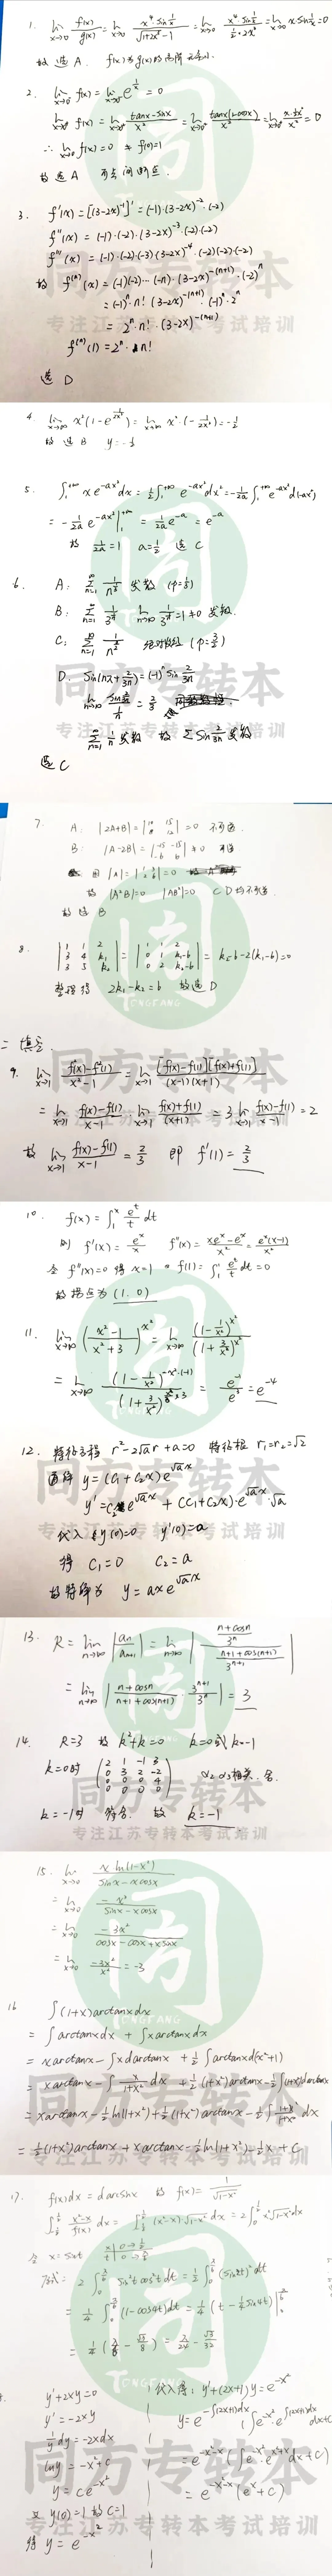 1. lim x→0 f(x)/g(x) = lim x→0 x⁴·sin(1/x) / (√(1+2x²) - 1) = lim x→0 x⁴·sin(1/x) / (½·2x²) = lim x→0 x·sin(1/x) = 0
故选 A. f(x)为g(x)的高阶无穷小.
2. lim x→0⁻ f(x) = lim x→0⁻ e^(1/x) = 0
lim x→0⁺ f(x) = lim x→0⁺ (tanx-sinx)/x² = lim x→0⁺ tanx(1-cosx)/x² = lim x→0⁺ x·½x²/x² = 0
∴ lim x→0 f(x) = 0 ≠ f(0)=1
故选A 可去间断点.
3. f'(x) = [(3-2x)⁻¹]' = (-1)·(3-2x)⁻²·(-2)
f''(x) = (-1)·(-2)·(3-2x)⁻³·(-2)·(-2)
f'''(x) = (-1)·(-2)·(-3)·(3-2x)⁻⁴·(-2)(-2)(-2)
故 f⁽ⁿ⁾(x) = (-1)(-2)···(-n)·(3-2x)^(-(n+1))·(-2)ⁿ
= (-1)ⁿ n! (3-2x)^(-(n+1))·(-1)ⁿ·2ⁿ
= 2ⁿ·n!·(3-2x)^(-(n+1))
f⁽ⁿ⁾(1) = 2ⁿ·n!
选 D
4. lim x→∞ x²(1-e^(1/2x²)) = lim x→∞ x²·(-1/2x²) = -½
故选 B y=-½
5. ∫₁^(+∞) x e^(-ax²)dx = ½∫₁^(+∞) e^(-ax²)dx² = -1/2a ∫₁^(+∞) e^(-ax²) d(-ax²)
= -1/2a e^(-ax²)|₁^(+∞) = 1/2a e^(-a) = e^(-a)
故 1/2a = 1 a=½ 选 C
6. A: 发散
B: 发散.
C: 绝对收敛 (p=3/2)
D. Sin(nπ+2/3n) = (-1)ⁿ Sin 2/3n
lim n→∞ (sin 2/3n)/(1/n) = 2/3
∑ n=1 ∞ 1/n 发散 故 ∑ Sin 2/3n 发散
选 C
7. A. |2A+B| = = 0 不可逆.
B: |A-2B| = ≠ 0 可逆
|A| = = 0
故 |A²B|=0 |AB²|=0 C D均不可逆.
故选 B
8. |1 1 2; 3 4 k₁; 3 5 k₂| = |1 1 2; 0 1 k₁-6; 0 2 k₂-6| = k₂-6-2(k₁-6)=0
整理得 2k₁-k₂=6 故选 D
二 填空.
9. lim x→1 (f²(x)-f²(1))/(x²-1) = lim x→1 [f(x)-f(1)][f(x)+f(1)]/((x-1)(x+1))
= lim x→1 (f(x)-f(1))/(x-1)·lim x→1 (f(x)+f(1))/(x+1) = 3 lim x→1 (f(x)-f(1))/(x-1) = 2
故 lim x→1 (f(x)-f(1))/(x-1) = 2/3 即 f'(1) = 2/3
10. f(x) = ∫₁ˣ eᵗ/t dt
则 f'(x) = eˣ/x f''(x) = (xeˣ-eˣ)/x² = eˣ(x-1)/x²
令 f''(x)=0 得 x=1 f(1) = ∫₁¹ eᵗ/t dt = 0
故拐点为 (1, 0)
11. lim x→∞ ((x²-1)/(x²+3))^(x²) = lim x→∞ (1-1/x²)^(x²)/(1+3/x²)^(x²)
= lim x→∞ (1-1/x²)^(-x²·(-1))/(1+3/x²)^(x²/3·3) = e⁻¹/e³ = e⁻⁴
12. 特征方程 r²-2√a r+a=0 特征根 r₁=r₂=√2
通解 y=(C₁+C₂x)e^(√a x)
y'=C₂e^(√a x)+(C₁+C₂x)·e^(√a x)·√a
代入 y(0)=0 y'(0)=a
得 C₁=0 C₂=a
故特解为 y=axe^(√a x)
13. R = lim n→∞ |aₙ/aₙ₊₁| = lim n→∞ |((n+cosn)/3ⁿ)/((n+1+cos(n+1))/3ⁿ⁺¹)|
= lim n→∞ |(n+cosn)/(n+1+cos(n+1))·3ⁿ⁺¹/3ⁿ| = 3
14. R=3 故 k²+k=0 k=0或k=-1
k=0时 (2 1 -1 3; 0 3 2 -2; 0 0 0 4; 0 0 0 0) α₂ α₃相关. 舍.
k=-1时 符合. 故 k=-1
15. lim x→0 x ln(1-x²)/(sinx-xcosx)
= lim x→0 -x³/(sinx-xcosx)
= lim x→0 -3x²/(cosx-cosx+xsinx)
= lim x→0 -3x²/x² = -3
16 ∫(1+x)arctanx dx
= ∫arctanx dx + ∫xarctanx dx
= xarctanx - ∫x darctanx + ½∫arctanx d(x²+1)
= xarctanx - ∫x/(1+x²) dx + ½(1+x²)arctanx - ½∫(1+x²)darctanx
= xarctanx - ½ln(1+x²) + ½(1+x²)arctanx - ½∫(1+x²)/(1+x²) dx
= ½(1+x²)arctanx + xarctanx - ½ln(1+x²) - ½x + C
17. f(x)dx = darcsinx 故 f(x) = 1/√(1-x²)
= 2∫₀^½ x²√(1-x²)dx
令 x=sint
原式= 2∫₀^(π/6) sin²t cos²t dt = ½∫₀^(π/6) (sin2t)² dt
= ¼∫₀^(π/6) (1-cos4t)dt = ¼(t-¼sin4t)|₀^(π/6)
= ¼(π/6-√3/8) = π/24-√3/32
y'+2xy=0
y'=-2xy
1/y dy=-2xdx
lny=-x²+C
y=ce^(-x²)
又 y(0)=1 故 C=1
得 y=e^(-x²)
代入得: y'+(2x+1)y=e^(-x²)
y=e^(-∫(2x+1)dx)(∫e^(-x²)·e^(∫(2x+1)dx)dx+C)
=e^(-x²-x)(∫e^(-x²)·e^(x²+x)dx+C)
=e^(-x²-x)(eˣ+C)
同方专转本
专注江苏专转本考试培训
TONGFANG